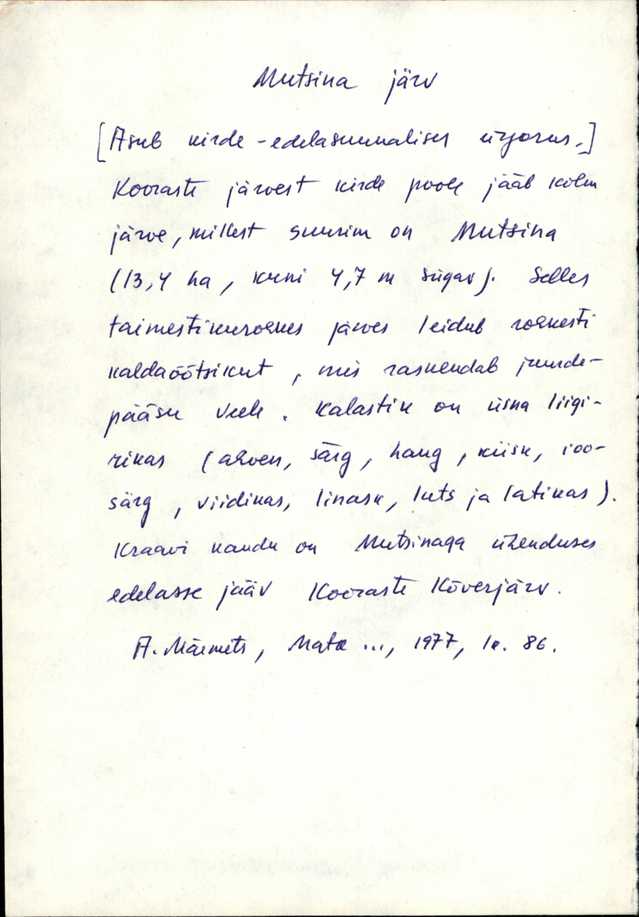 Mutsina järv
[Asub kirde-edelasuunalises ürgorus.]
Kooraste järvest kirde poole jääb kolm
järve, millest suurim on Mutsina
(13,4 ha, kuni 4,7 m sügav). Selles
taimestikurohkes järves leidub rohkesti
kaldaõõtsikut, mis raskendab juurde-
pääsu veele. Kalastik on üsna liigi-
rikas (ahven, särg, haug, kiisk, roo-
särg, viidikas, linask, luts ja latikas).
Kraavi kaudu on Mutsinaga ühenduses
edelasse jääv Kooraste Kõverjärv.
A. Mäemets, Matk ..., 1977, lk. 86.